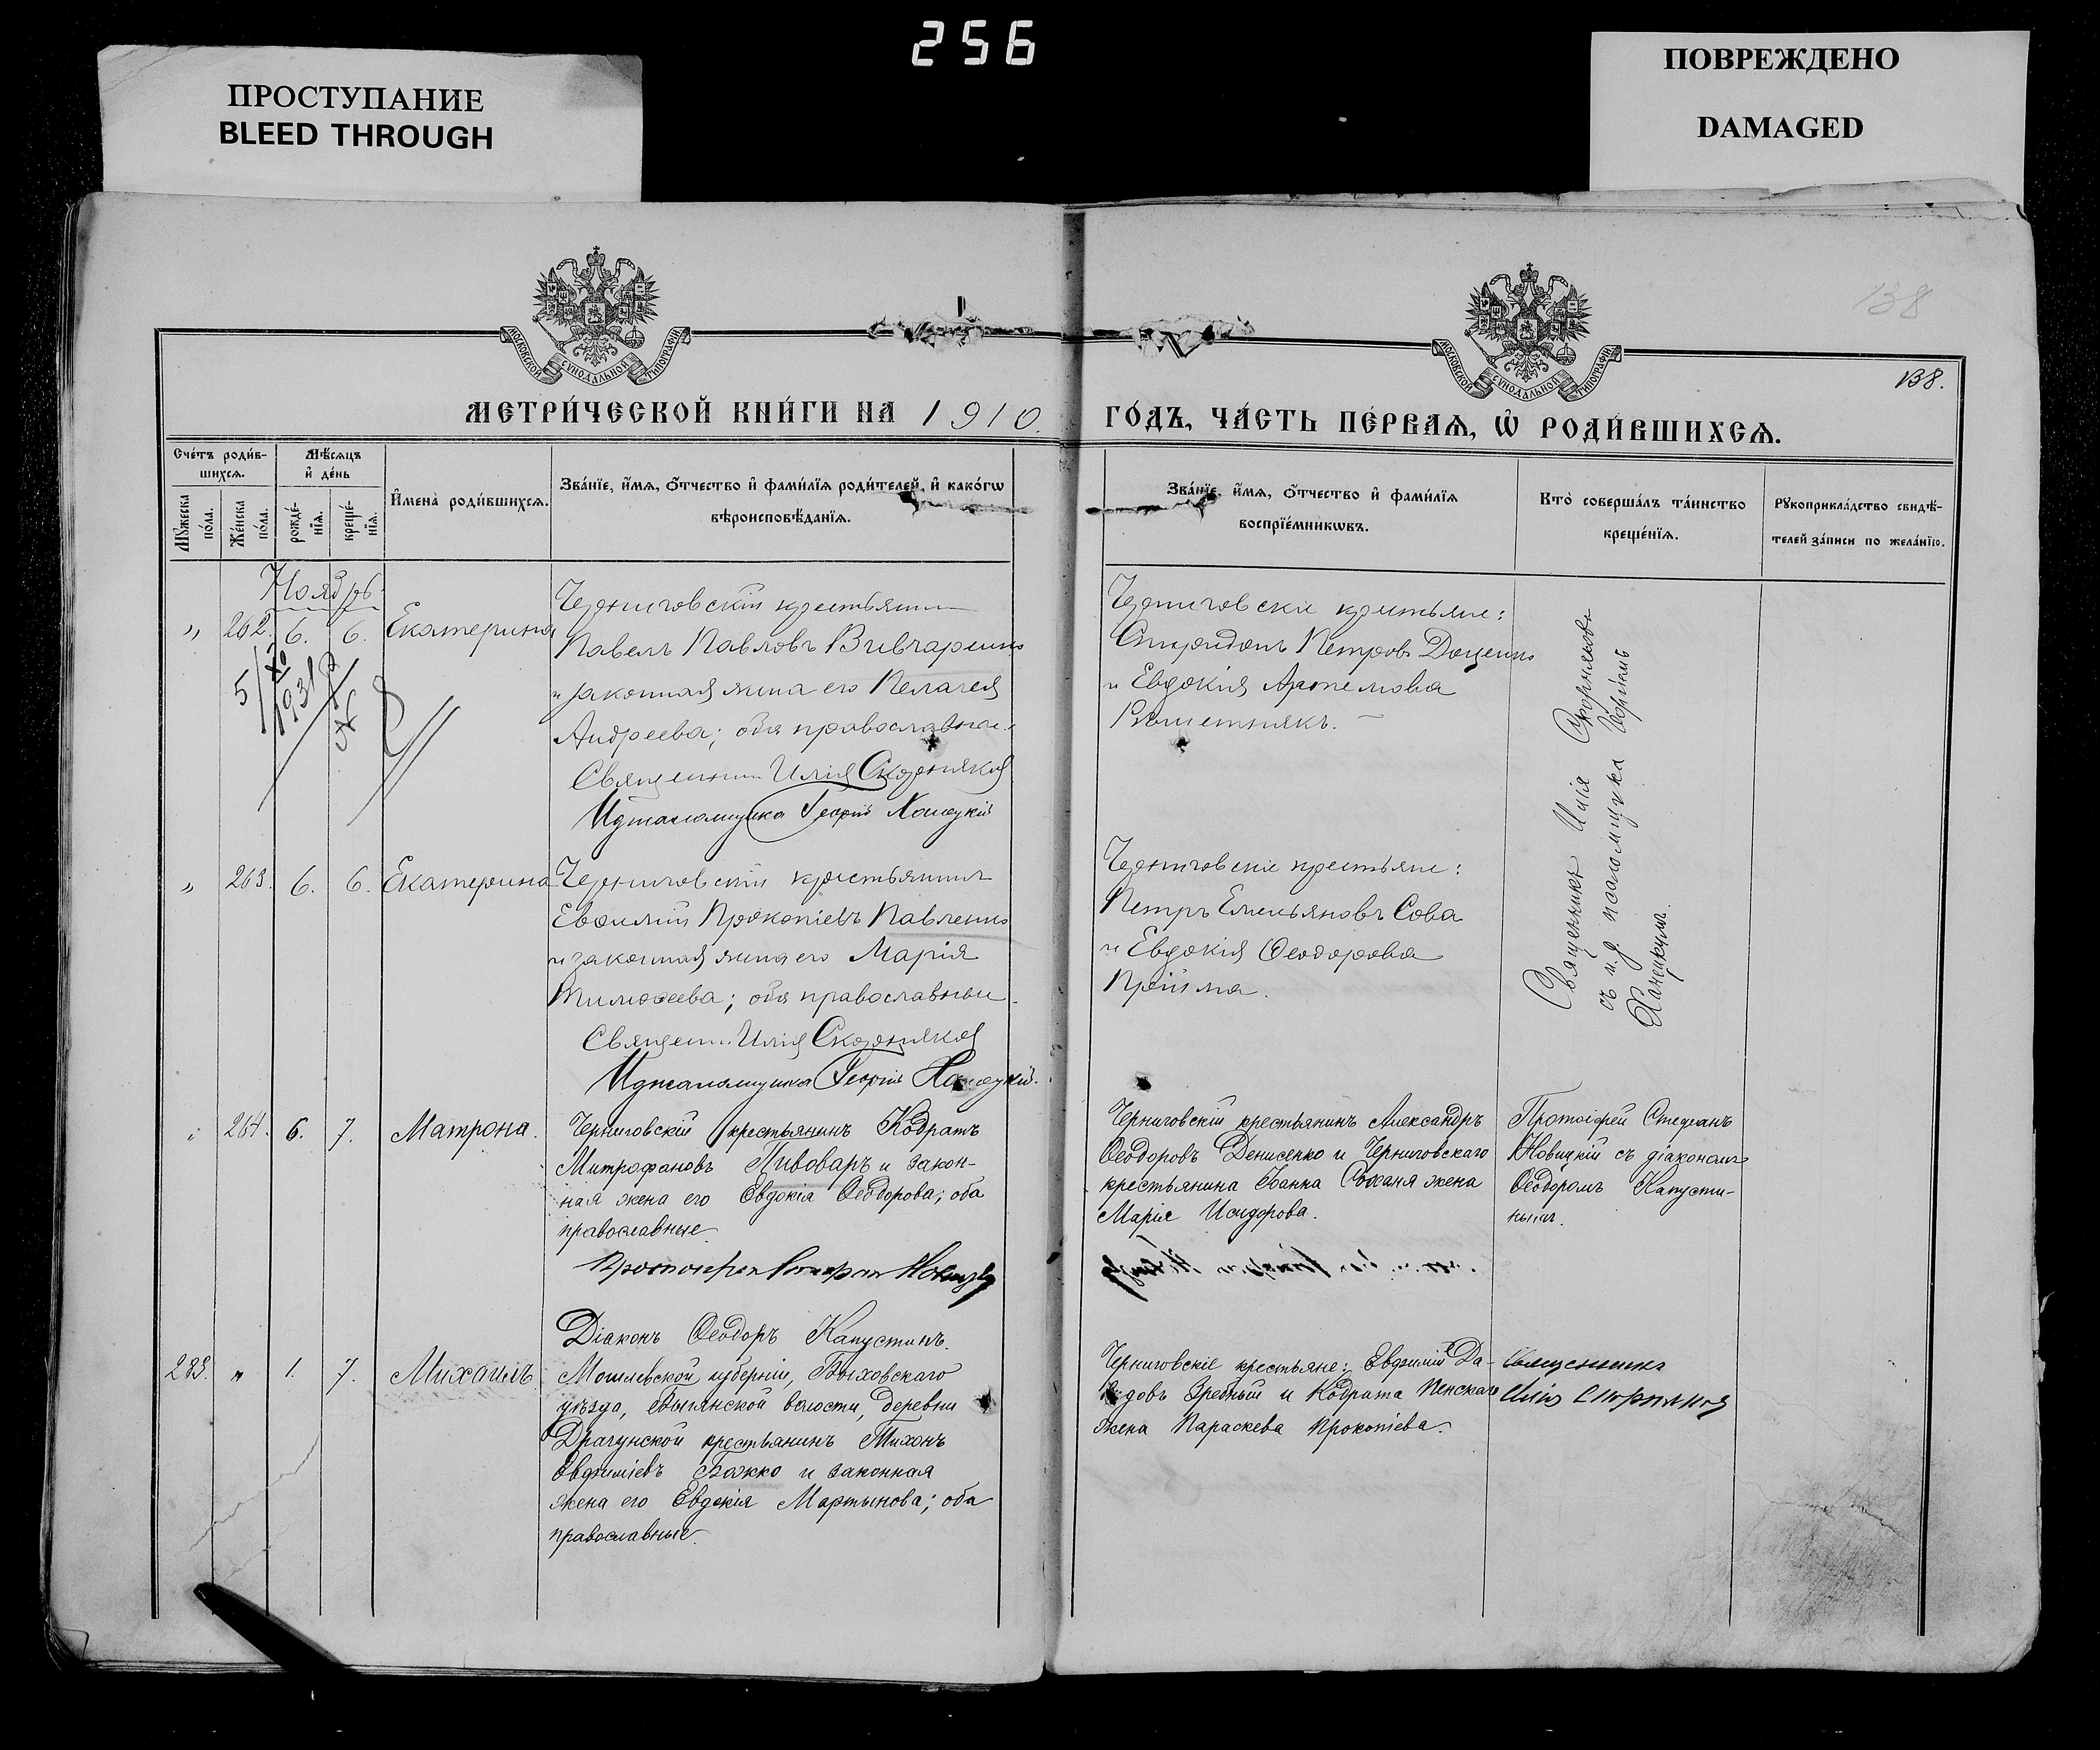 256
ПРОСТУПАНИЕ
BLEED THROUGH
ПОВРЕЖДЕНО
DAMAGED
138
138.
МОСКОВСКОЙ СѴНОДАЛЬНОЙ ТИПОГРАФІИ
МОСКОВСКОЙ СѴНОДАЛЬНОЙ ТИПОГРАФІИ
МЕТРИ́ЧЕСКОЙ КНИ́ГИ НА 1910.
ГО́ДЪ, ЧА́СТЬ ПЕ́РВАѦ, Ѽ РОДИ́ВШИХСѦ.
Сче́тъ роди́в-
шихсѧ.
Мѣ́сѧцъ
и҆ де́нь
Мꙋ́жеска по́ла.
Же́нска по́ла.
рожде́-
нїѧ.
креще́-
нїѧ.
И҆мена̀ роди́вшихсѧ.
Зва́нїе, и҆́мѧ, ѻ҆́тчество и҆ фами́лїѧ роди́телей, и҆ како́гѡ
вѣроисповѣ́данїѧ.
Зва́нїе, и҆́мѧ, ѻ҆́тчество и҆ фами́лїѧ
воспрїе́мникѡвъ.
Кто̀ соверша́лъ та́инство
креще́нїѧ.
Рꙋкоприкла́дство свидѣ́-
телей за́писи по жела́нїю.
Ноябрь
" 262. 6. 6. Екатерина
Черниговскій крестьянинъ
Павелъ Павловъ Вивчаренко
и законная жена его Пелагея
Андреева; оба православные.
Священникъ Илія Скорняков
И д псаломщика Георгій Ханецкій
Черниговскіе крестьяне:
Спиридонъ Петровъ Доценко
и Евдокія Артемова
Священникъ Илія Скорняковъ
съ и. д. псаломщика Георгіемъ
Ханецкимъ.
" 263. 6. 6. Екатерина
Черниговскій крестьянинъ
Евфимій Прокопіевъ Павленко
и законная жена его Марія
Тимофеева; оба православные.
Священ. Илія Скорняков
И д псаломщика Георгій Ханецкій.
Черниговскіе крестьяне:
Петръ Емельяновъ Сова
и Евдокія Ѳеодорова
Прійма.
" 264. 6. 7. Матрона.
Черниговскій крестьянинъ Кодратъ
Митрофановъ Пивоваръ и закон-
ная жена его Евдокія Ѳеодорова; оба
православные.
Протоіерей Стефан Новицкій
Діаконъ Ѳеодоръ Капустинъ.
Черниговскій крестьянинъ Александръ
Ѳеодоровъ Денисенко и Черниговскаго
крестьянина жена
Марія Исидорова.
Протоіерей Стефанъ
Новицкій съ діакономъ
Ѳеодоромъ Капусти-
нымъ.
283. " 1. 7. Михаилъ.
Могилевской губерніи, Быховскаго
уѣзда, волости, деревни
Драгунской крестьянинъ Тихонъ
Евфиміевъ Божко и законная
жена его Евдокія Мартынова; оба
православные.
Черниговскіе крестьяне: Евфимій Да-
видовъ и Кодрата Пенскаго
жена Параскева Прокопіева.
Священникъ
Илія Скорняков